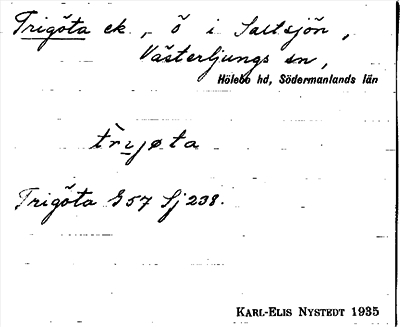 Trigöta ek., ö i Saltsjön,
Västerljungs sn,
Hölebo hd, Södermanlands län
trijøta
Trigöta G 57 Sj 238.
KARL-ELIS NYSTEDT 1935